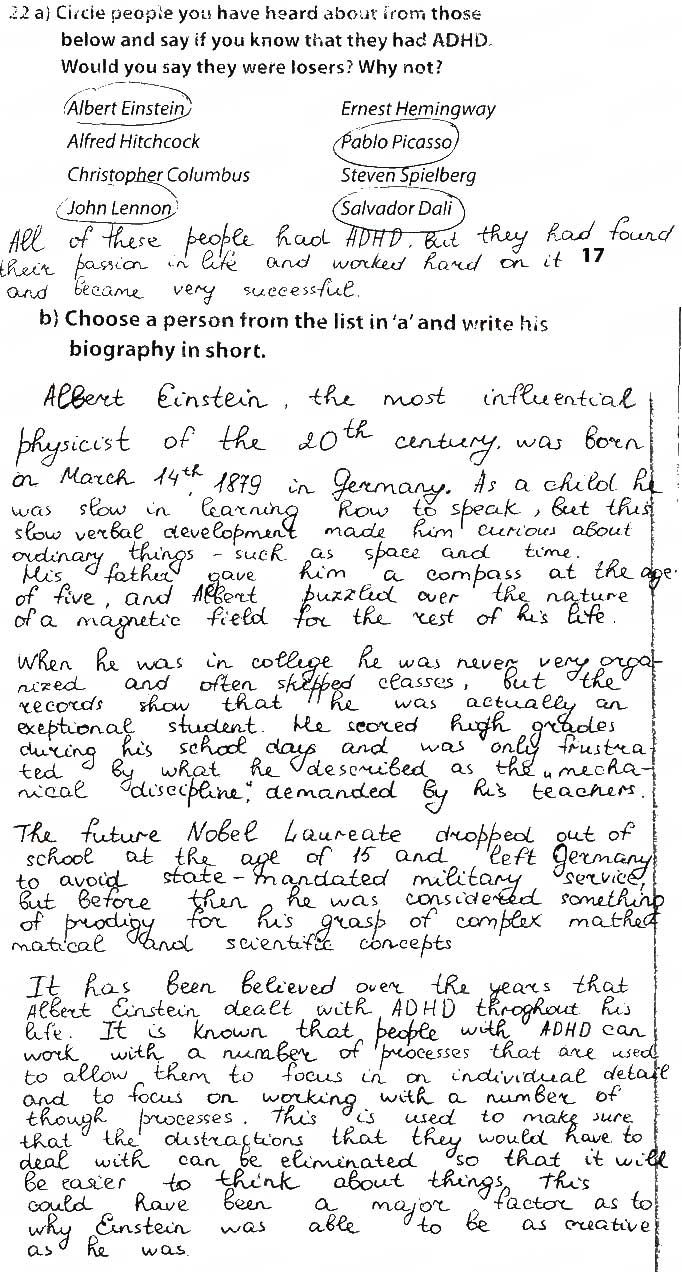 22 a) Circle people you have heard about from those
below and say if you know that they had ADHD.
Would you say they were losers? Why not?
Albert Einstein
Ernest Hemingway
Alfred Hitchcock
Pablo Picasso
Christopher Columbus
Steven Spielberg
John Lennon
Salvador Dali
All of these people had ADHD. But they had found
their passion in life and worked hard on it 17
and became very successful.
b) Choose a person from the list in 'a' and write his
biography in short.
Albert Einstein, the most influential
physicist of the 20th century, was born
on March 14th, 1879 in Germany. As a child he
was slow in learning how to speak, but this
slow verbal development made him curious about
ordinary things - such as space and time.
His father gave him a compass at the age
of five, and Albert puzzled over the nature
of a magnetic field for the rest of his life.
When he was in college he was never very orga-
nized and often skipped classes, but the
records show that he was actually an
exeptional student. He scored high grades
during his school days and was only frustra-
ted by what he described as the "mecha-
nical discipline," demanded by his teachers.
The future Nobel Laureate dropped out of
school at the age of 15 and left Germany
to avoid state-mandated military service,
but before then he was considered something
of prodigy for his grasp of complex mathe
matical and scientific concepts
It has been believed over the years that
Albert Einstein dealt with ADHD throghout his
life. It is known that people with ADHD can
work with a number of processes that are used
to allow them to focus in on individual detail
and to focus on working with a number of
though processes. This is used to make sure
that the distractions that they would have to
deal with can be eliminated so that it will
be easier to think about things. This
could have been a major factor as to
why Einstein was able to be as creative
as he was.